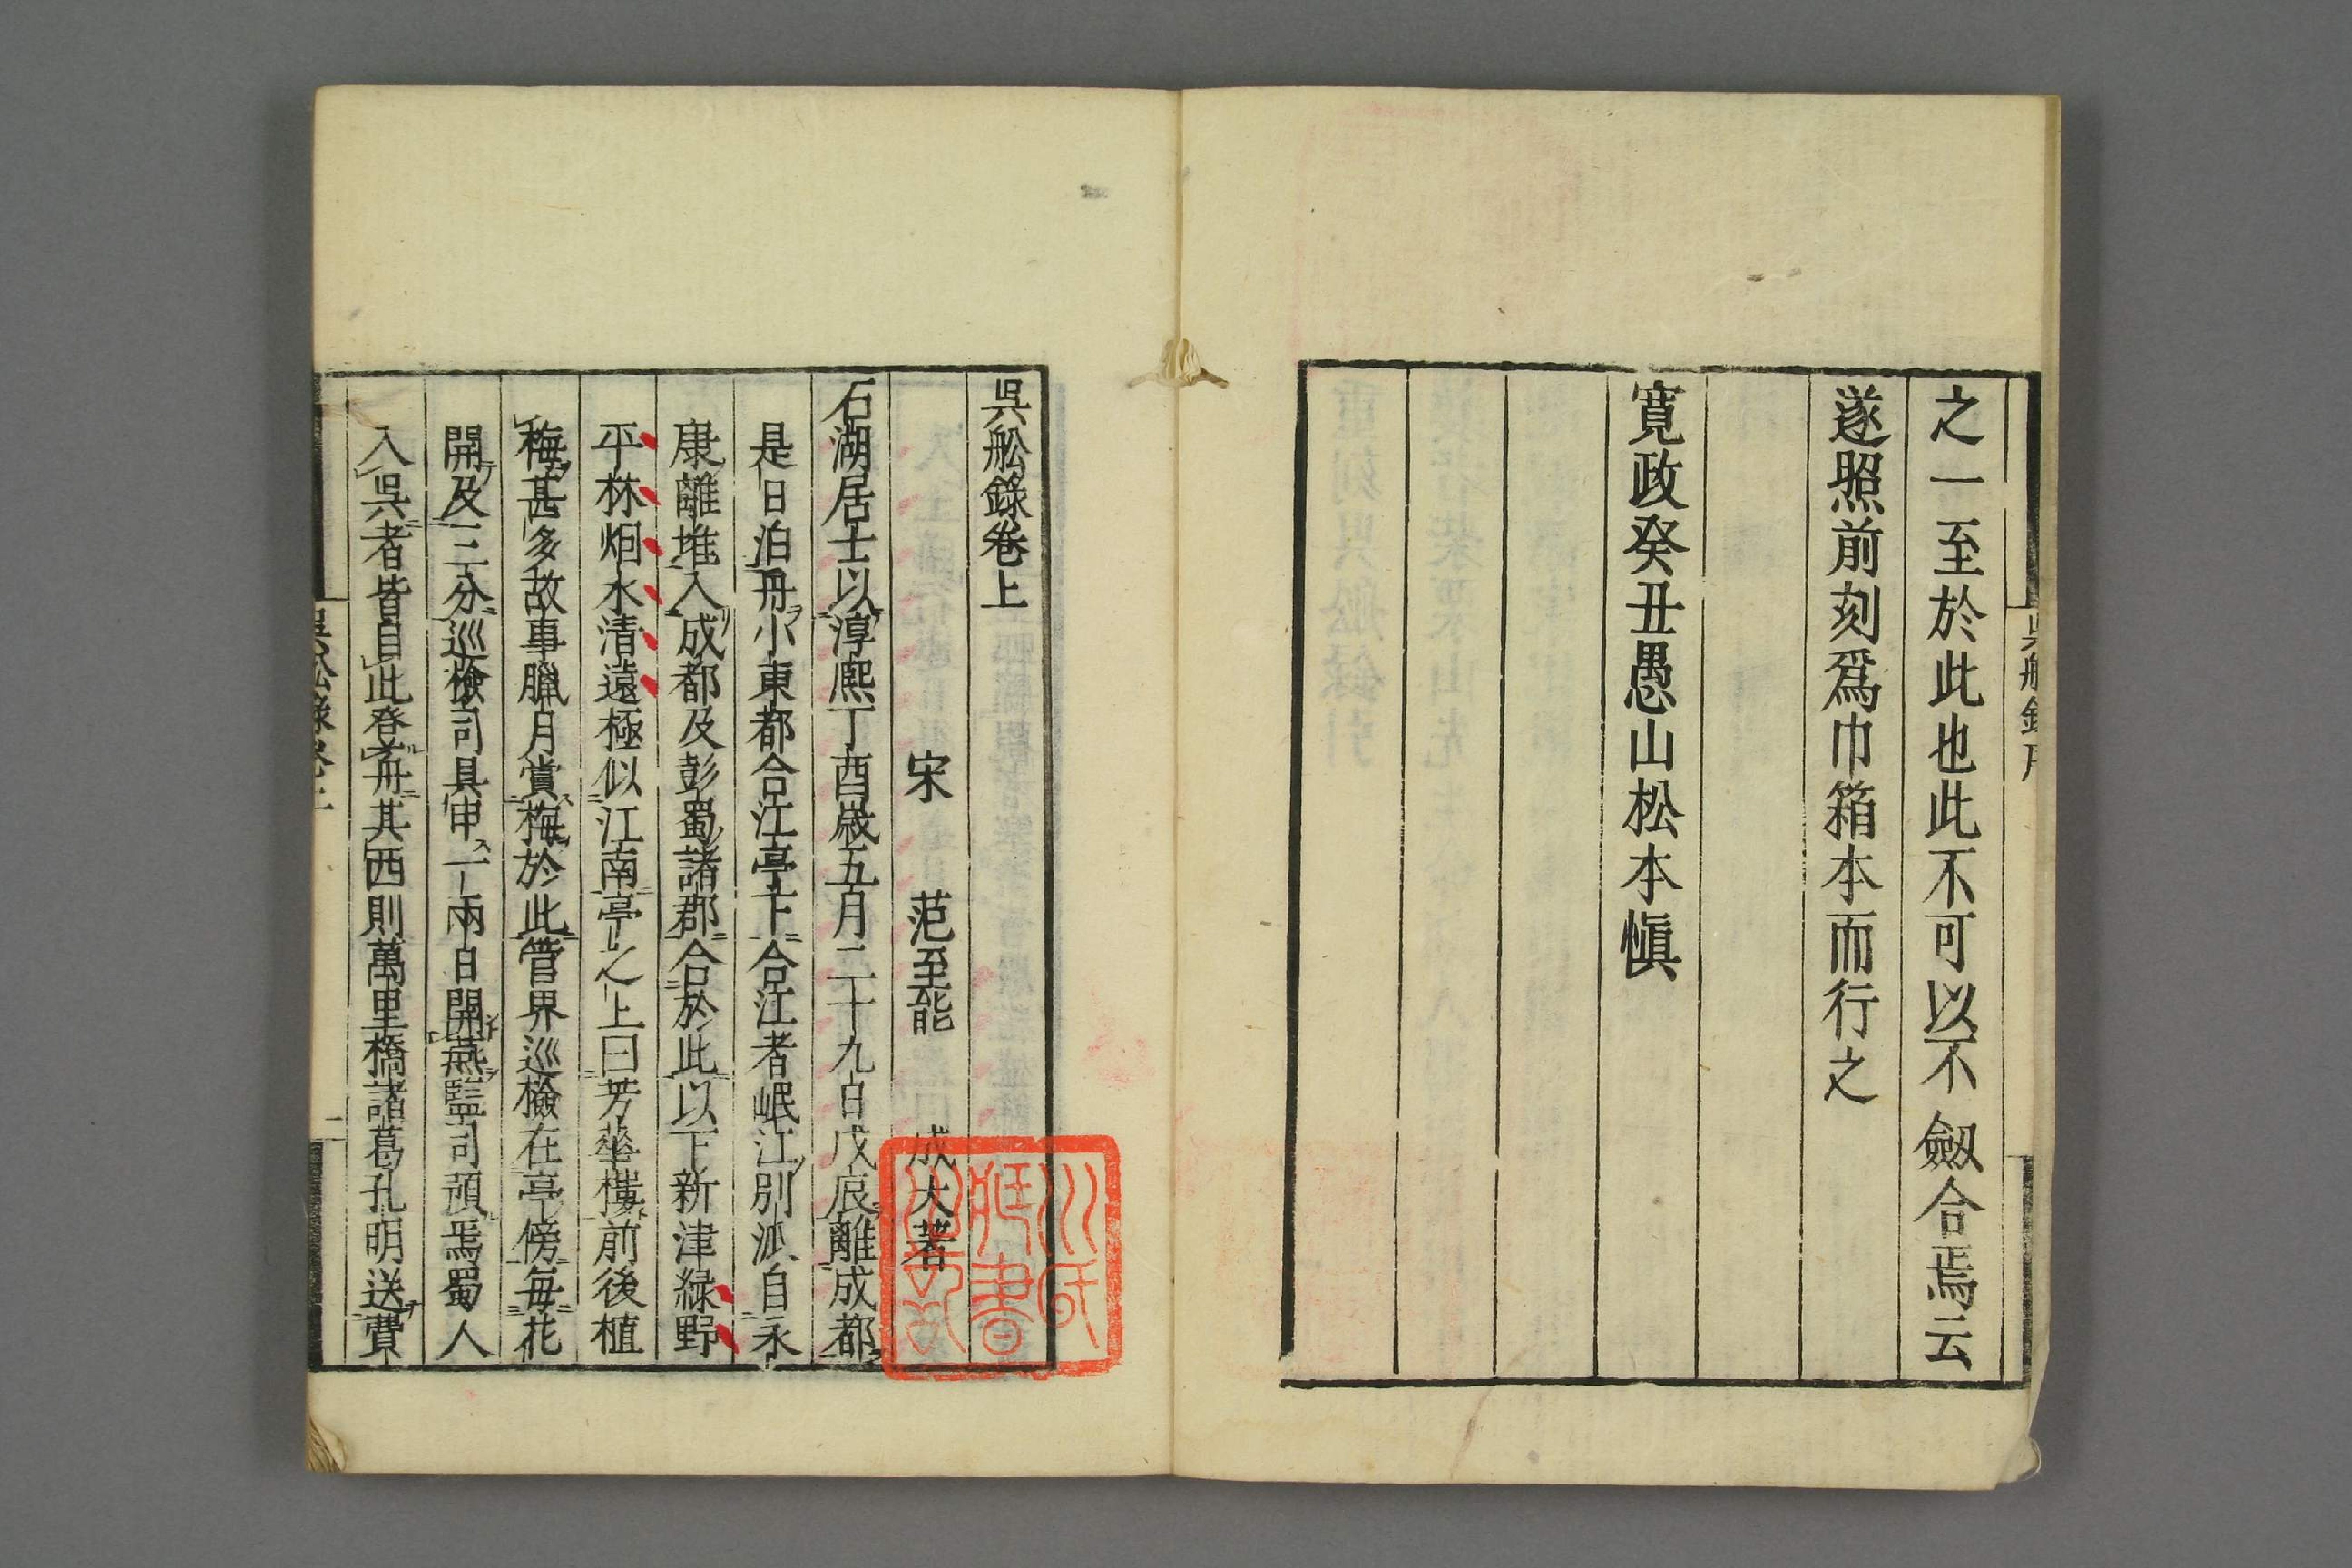 之一至於此也此不可以不劒合焉云
遂照前刻爲巾箱本而行之
寛政癸丑愚山松本愼
吳舩錄卷上
宋 范至能 成大著
石湖居士以淳熙丁酉歲五月二十九日戊辰離成都
是日泊舟小東都合江亭下合江者岷江別派自永
康離堆入成都及彭蜀諸郡合於此以下新津緑野
平林烟水清遠極似江南亭之上曰芳華樓前後植
梅甚多故事臘月賞梅於此管界巡檢在亭傍每花
開及三分巡檢司具申一兩日開燕監司預焉蜀人
入吳者皆自此登舟其西則萬里橋諸葛孔明送費